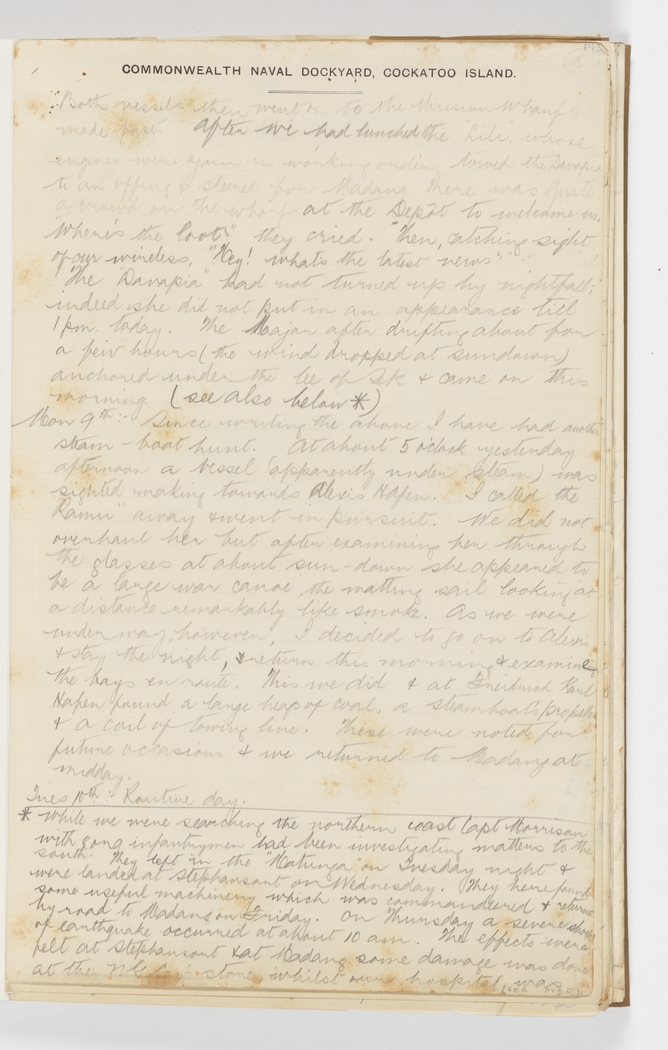 COMMONWEALTH NAVAL DOCKYARD, COCKATOO ISLAND.
Both vessels then went on to the Mission Wharf &
made fast. After we had lunched the "Lili", whose
engines were again in working order, towed the Davapia
to an offing & steered for Madang. There was quite
a crowd on the wharf at the Depôt to welcome us.
"Where's the loot?" they cried. Then, catching sight
of our wireless, "Hey! whats the latest news?"
The "Davapia" had not turned up by nightfall;
indeed she did not put in an appearance till
1 pm. today. The Major after drifting about for
a few hours (the wind dropped at sundown)
anchored under the lee of & came on this
morning. (see also below *)
Mon 9th:- Since writing the above I have had another
steam-boat hunt. At about 5 o'clock yesterday
afternoon a vessel (apparently under steam) was
sighted making towards Alexis Hafen. I called the
"Ramu" away & went in pursuit. We did not
overhaul her but after examining her through
the glasses at about sun-down she appeared to
be a large war canoe, the matting sail looking at
a distance remarkably like smoke. As we were
under way, however, I decided to go on to Alexis
& stay the night, & return this morning & examining
the bays en route. This we did & at Freidrich Karl
Hafen found a large heap of coal, a steamboats propeller
& a coil of towing line. These were noted for
future occasions & we returned to Madang at
midday.
Tues 10th: Routine day.
* While we were searching the northern coast Capt Morrison
with some infantrymen had been investigating matters to the
south. They left in the "Matunga" on Tuesday night &
were landed at Stephansort on Wednesday. They here found
some useful machinery which was commandeered & returned
by road to Madang on Friday. On Thursday a severe shock
of earthquake occurred at about 10 am. The effects were
felt at Stephansort & at Madang some damage was done
at the N.G. store, whilst our hospital was
(see over)